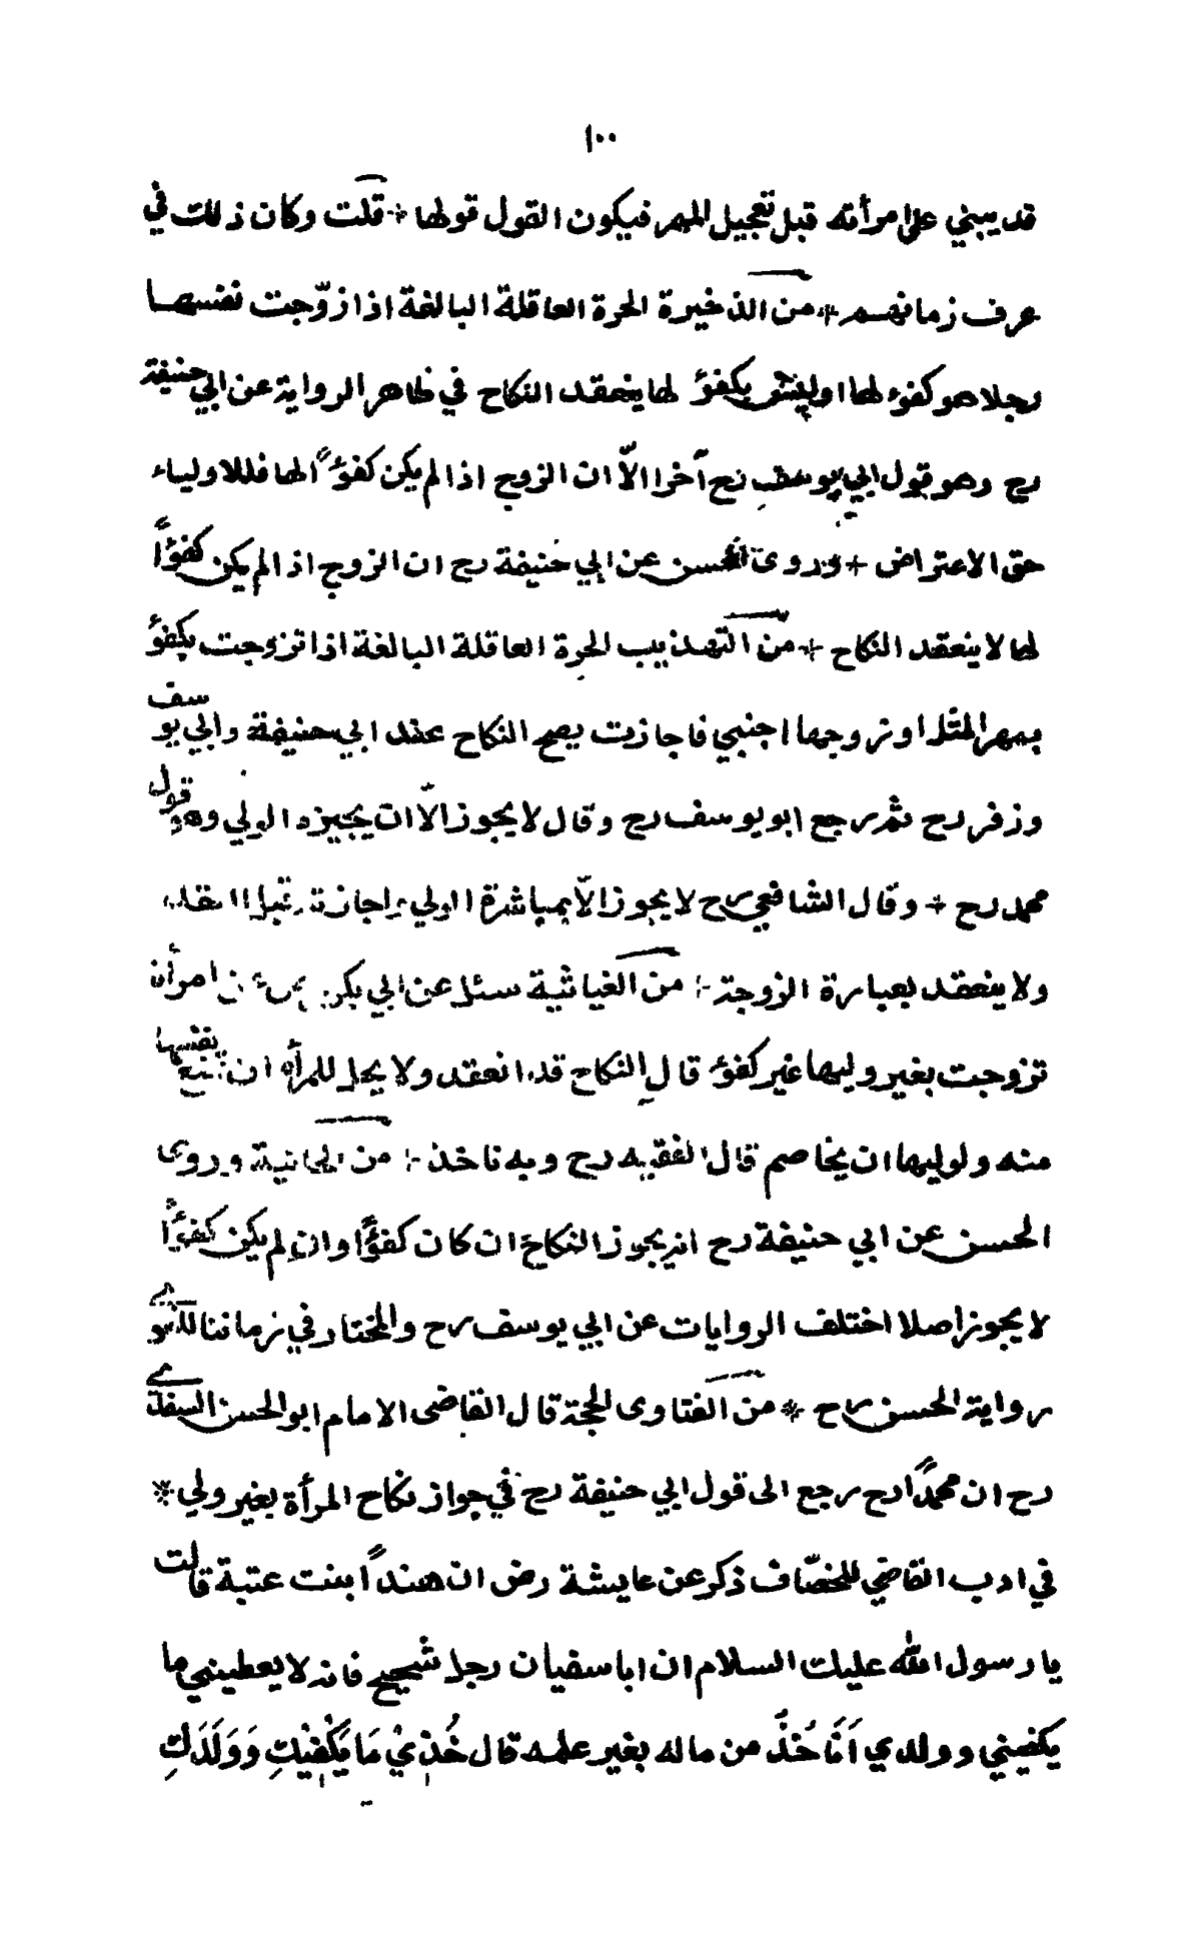 ١٠٠
قد يبني على امرأته قبل تعجيل المهر فيكون القول قولها * قلت وكان ذلك في
عرف زمانهم * من الذخيرة الحرة العاقلة البالغة اذا زوّجت نفسها
رجلا هو كفوء لها او ليس بكفؤ لها ينعقد النكاح في ظاهر الرواية عن ابي حنيفة
رح وهو قول ابي يوسف رح آخرا الاّ ان الزوج اذا لم يكن كفؤًا لها فللاولياء
حق الاعتراض * وروى الحسن عن ابي حنيفة رح ان الزوج اذا لم يكن كفوًا
لها لا ينعقد النكاح * من التهذيب الحرة العاقلة البالغة اذا تزوجت بكفؤ
بمهر المثل او تزوجها اجنبي فاجازت يصح النكاح عند ابي حنيفة وابي يوسف
وزفر رح ثم رجع ابو يوسف رح وقال لا يجوز الاّ ان يجيزه الولي وهو قول
محمد رح * وقال الشافعي رح لا يجوز الاّ بمباشرة الولي اجازته قبل العقد
ولا ينعقد بعبارة الزوجة * من الغياثية سئل عن ابي بكر عن امرأة
تزوجت بغير وليها غير كفؤ قال النكاح قد انعقد ولا يحل للمرأة ان تمنع نفسها
منه ولوليها ان يخاصم قال الفقيه رح وبه ناخذ * من الخانية وروى
الحسن عن ابي حنيفة رح انه يجوز النكاح ان كان كفؤًا وان لم يكن كفؤًا
لا يجوز اصلا اختلف الروايات عن ابي يوسف رح والمختار في زماننا للفتوى
رواية الحسن رح * من الفتاوى الحجة قال القاضى الامام ابو الحسن السغدى
رح ان محمدًا رح رجع الى قول ابي حنيفة رح في جواز نكاح المرأة بغير ولي *
في ادب القاضي للخصّاف ذكر عن عايشة رض ان هندًا بنت عتبة قالت
يا رسول الله عليك السلام ان ابا سفيان رجل شحيح فانه لا يعطيني ما
يكفيني وولدي اَنَا خُذُ من ماله بغير علمه قال خُذِيْ مَا يَكْفِيْكِ وَوَلَدَكِ